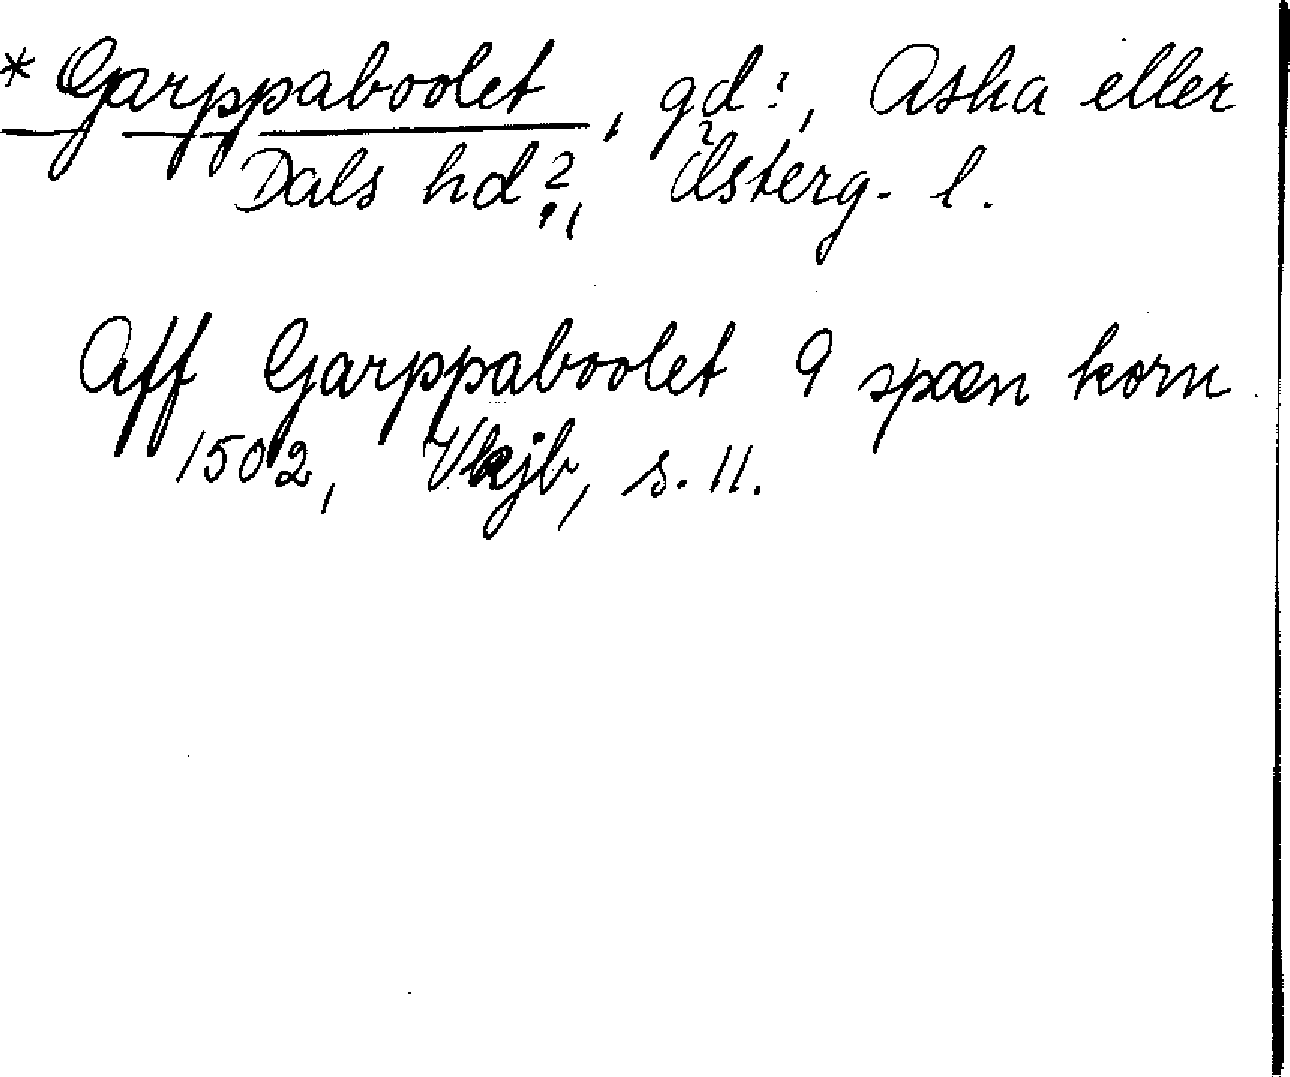 * Garppaboolet, gd?, Aska eller
Dals hd?, Österg. l.
Aff Garppaboolet 9 spæn korn.
1502, Vkjb, s. 11.